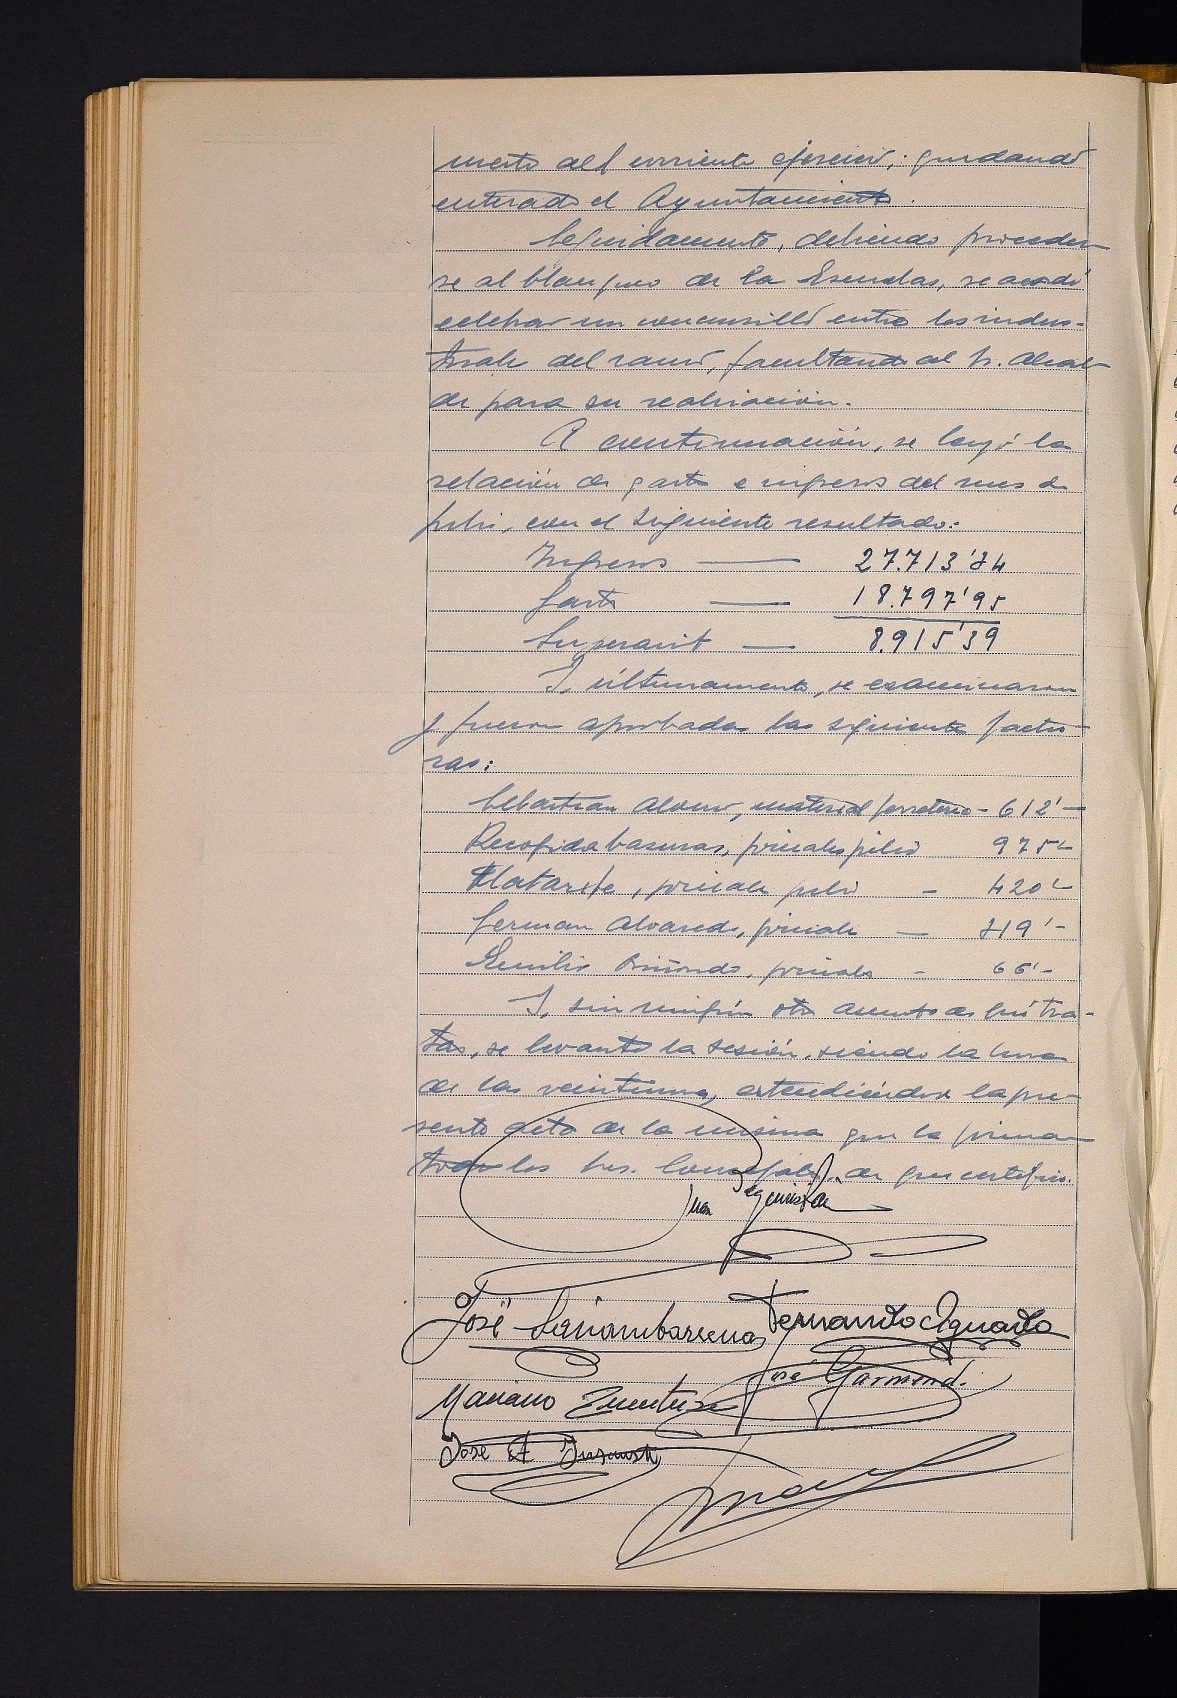 puesto del corriente ejercicio; quedando
enterado el Ayuntamiento.
Seguidamente, debiendo proceder-
se al blanqueo de la Escuelas, se acordó
celebrar un concursillo entre los indus-
triale del ramo, facultando al Sr. Alcal-
de para su realización.
A continuación, se leyó la
relación de gastos e ingresos del mes de
julio, con el siguiente resultado:
Ingresos — 27.713'34
Gastos — 18.797'95
Superavit — 8.915'39
Y, últimamente, se examinaron
y fueron aprobadas las siguiente factu-
ras:
Sebastian Alonso, material ferreteria - 612'-
Recogida basuras, jornales julio 975'-
Matarife, jornales julio - 420'-
German Alvarado, jornales — 719'-
Emilio, jornales - 66'-
Y, sin ningún otro asunto de que tra-
tar, se levantó la sesión, siendo la hora
de las veintiuna, extendiéndose la pre-
sente acta de la misma que la firman
todos los Sres. Concejales, de que certifico.
Juan Izquierdo
José Larrambarrena Fernando Aguado
Mariano José Garmendi.
José A.